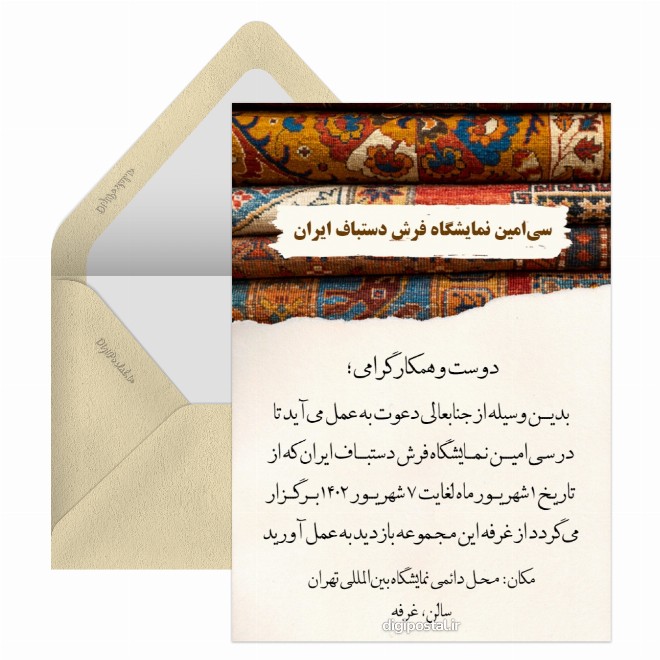 سی‌امین نمایشگاه فرش دستباف ایران
دوست و همکار گرامی؛
بدین وسیله از جنابعالی دعوت به عمل می آید تا
در سی امین نمایشگاه فرش دستباف ایران که از
تاریخ ۱ شهریور ماه لغایت ۷ شهریور ۱۴۰۲ برگزار
می گردد از غرفه این مجموعه بازدید به عمل آورید
مکان: محل دائمی نمایشگاه بین المللی تهران
سالن، غرفه
digipostal.ir
DigiPostal.ir
DigiPostal.ir